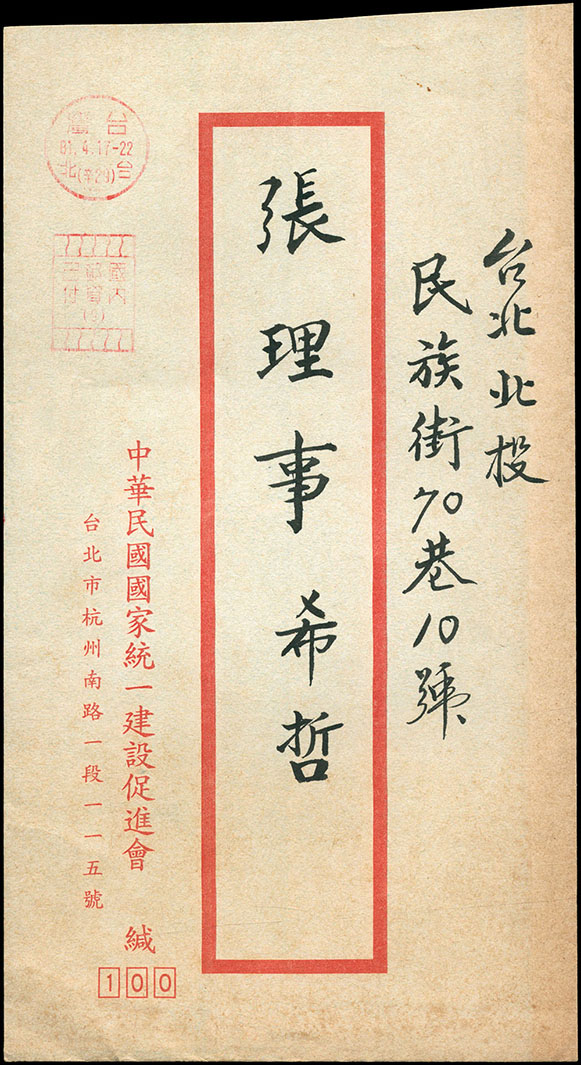 台北北投
民族街70巷10號
張理事希哲
中華民國國家統一建設促進會 緘
台北市杭州南路一段一一五號
100
台灣
81.4.17-22
台北
國內
郵資
已付